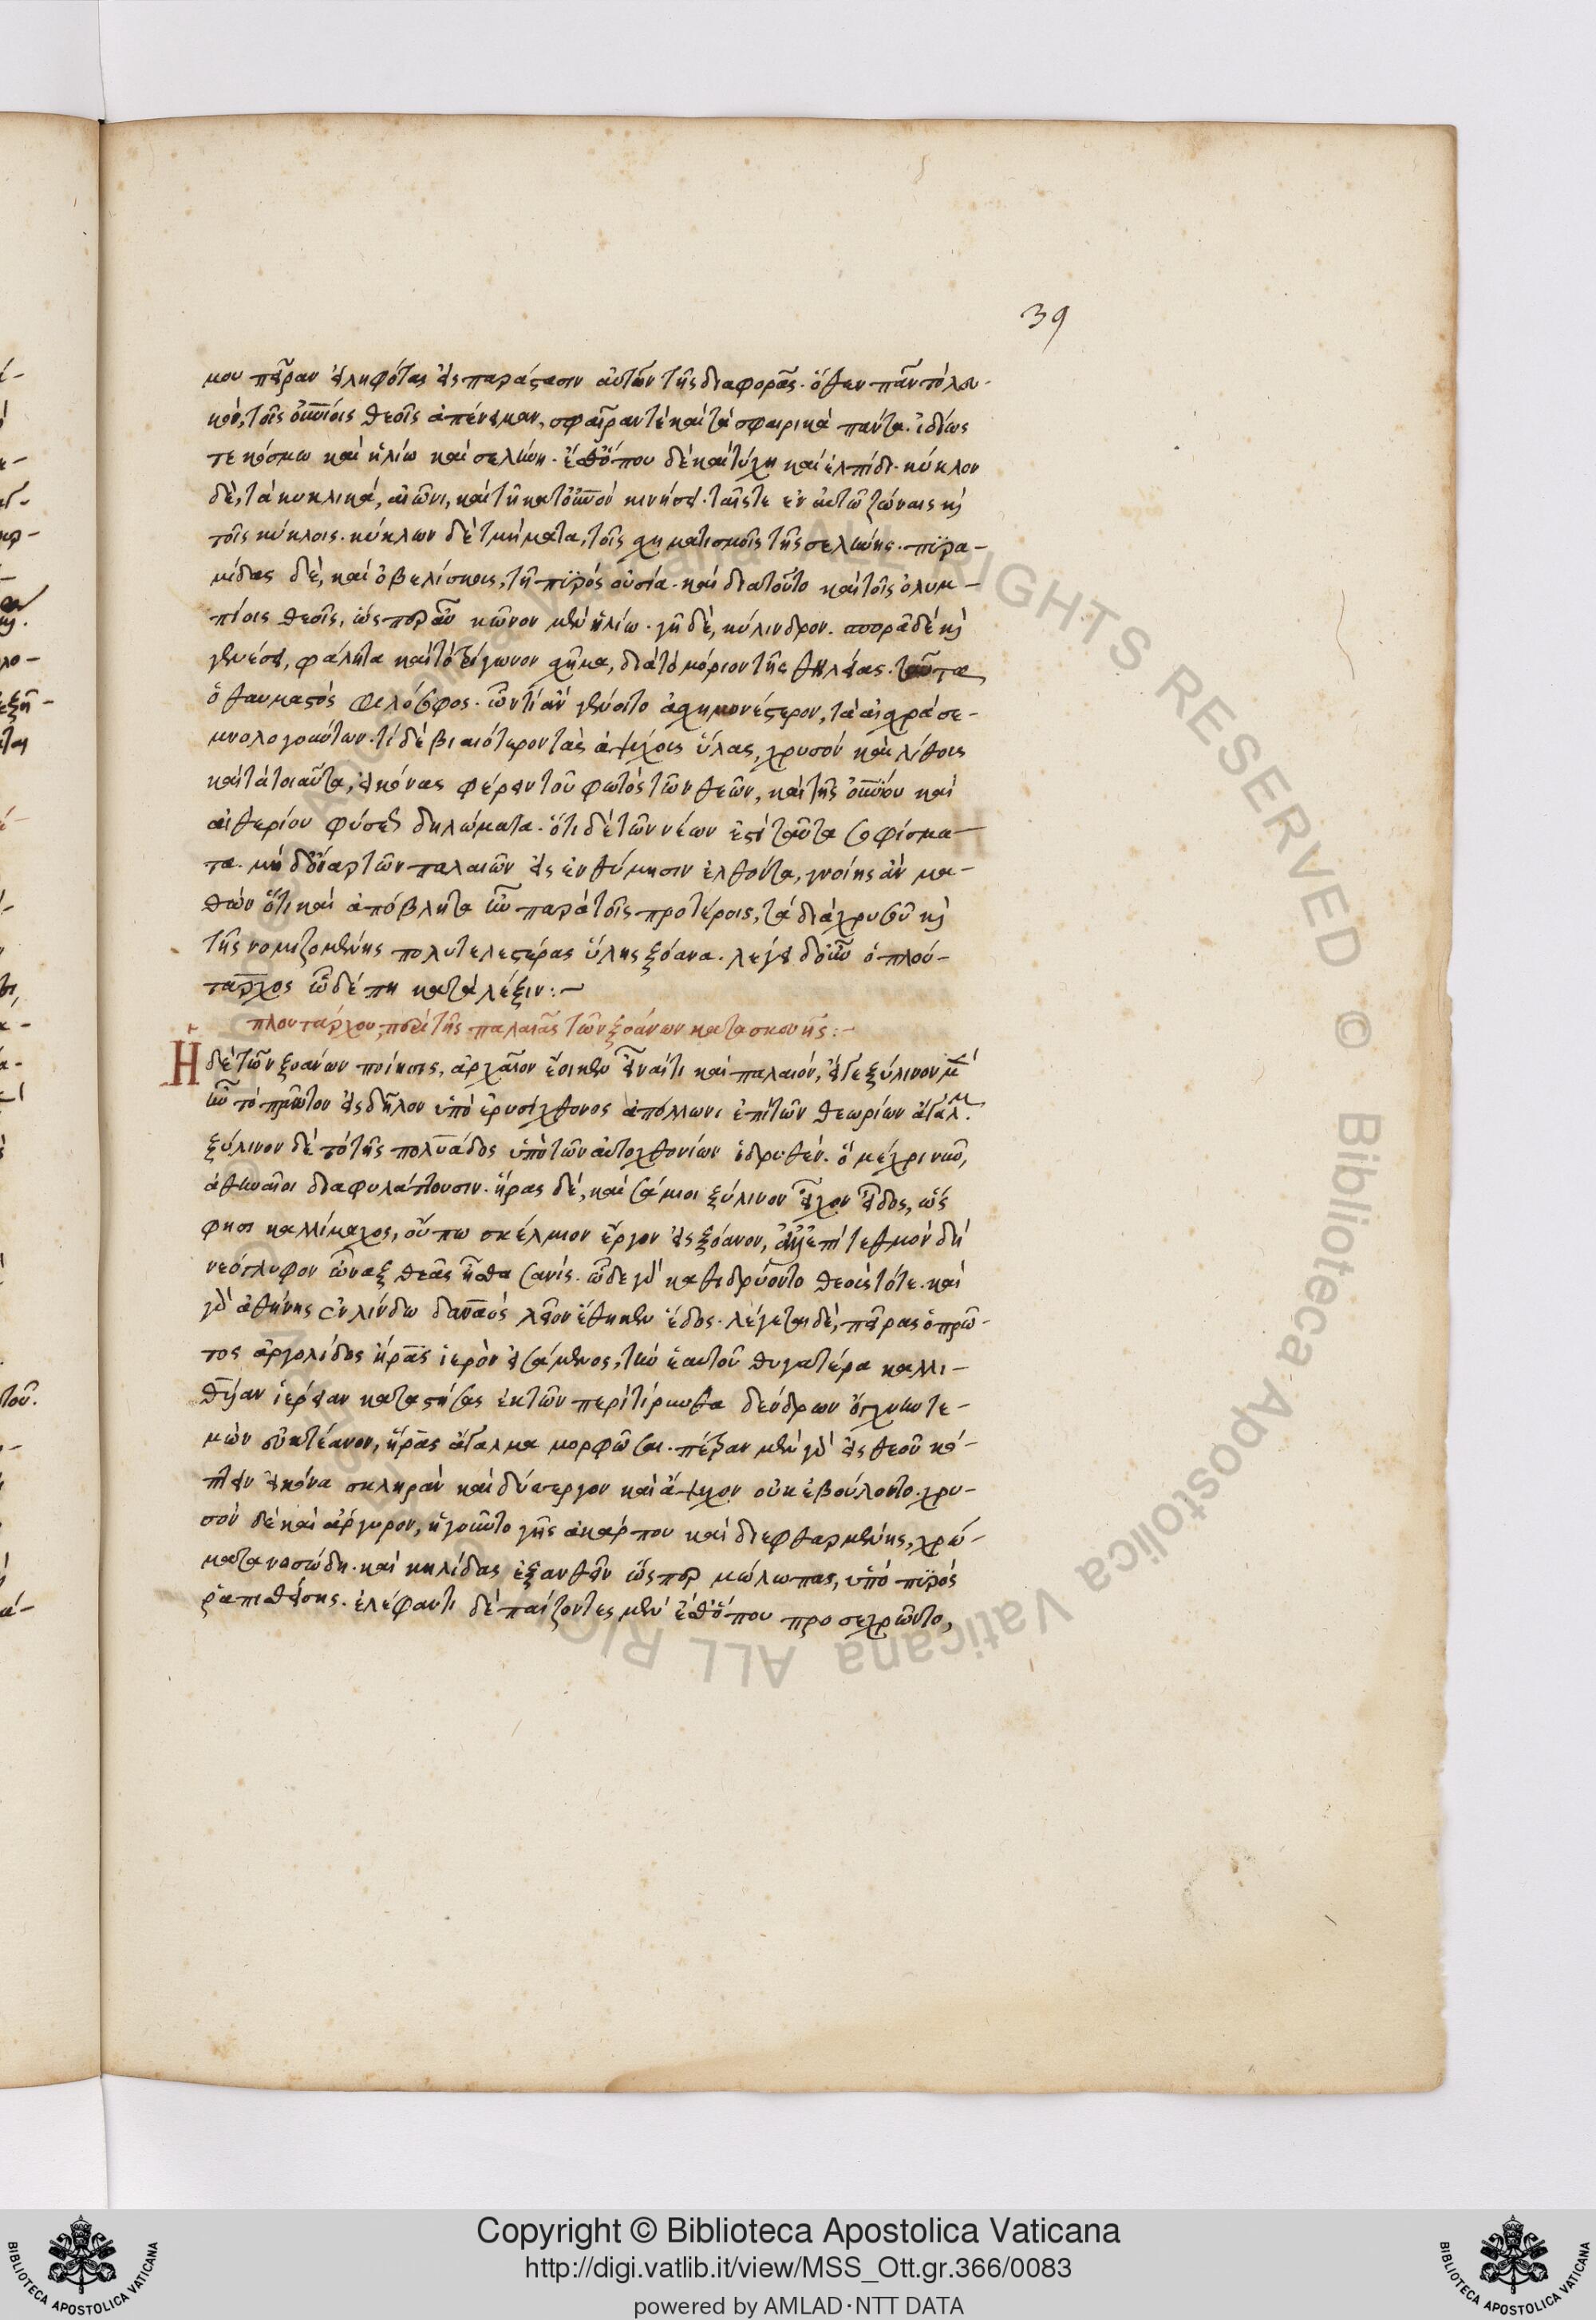 μου πεῖραν εἰληφότας εἰς παράστασιν αὐτῶν τῆς διαφορᾶς. ὅθεν πᾶν τὸ λευ-
κὸν, τοῖς οὐνίοις θεοῖς ἀπένειμαν, σφαῖραν τὲ καὶ τὰ σφαιρικὰ πάντα. ἰδίως
τε κόσμω καὶ ἡλίω καὶ σελήνη. ἔσθ' ὅπου δὲ καὶ τύχη καὶ ἐλπίδι. κύκλον
δὲ, τὰ κυκλικὰ, αἰῶνι, καὶ τῆ κατ' οὐνὸν κινήσει. ταῖς τε ἐν αὐτῶ ζώναις κὶ
τοῖς κύκλοις. κύκλων δὲ τμήματα, τοῖς σχηματισμοῖς τῆς σελήνης. πυρα-
μίδας δὲ, καὶ ὀβελίσκοις, τῆ πυρὸς οὐσία. καὶ διατοῦτο καὶ τοῖς ὀλυμ-
πίοις θεοῖς, ὥσπερ αὖ κῶνον μὲν ἡλίω. γῆ δὲ, κύλινδρον. σπορᾶ δὲ κὶ
γενέσει, φάλητα καὶ τὸ τρίγωνον σχῆμα, διὰ τὸ μόριον τῆς θηλείας. ταῦτα
ὁ θαυμαστὸς φιλόσοφος. ὧν τί ἂν γένοιτο ἀσχημονέστερον, τὰ αἰσχρὰ σε-
μνολογούντων. τί δὲ βιαιότερον τὰς ἀψύχοις ὕλας, χρυσὸν καὶ λίθοις
καὶ τὰ τοιαῦτα, εἰκόνας φέρειν τοῦ φωτὸς τῶν θεῶν, καὶ τῆς οὐνίου καὶ
αἰθερίου φύσεως δηλώματα. ὅτι δὲ τῶν νέων ἐστὶ ταῦτα σοφίσμα-
τα. μὴ δ' ὄναρ τῶν παλαιῶν εἰς ἐνθύμησιν ἐλθόντα, γνοίης ἂν μα-
θὼν ὅτι καὶ ἀπόβλητα ἦν παρὰ τοῖς προτέροις, τὰ διὰ χρυσοῦ κὶ
τῆς νομιζομένης πολυτελεστέρας ὕλης ξόανα. λέγει δ' οὖν ὁ πλού-
ταρχος ὧδέ πη κατὰ λέξιν:~
πλουτάρχου, περὶ τῆς παλαιᾶς τῶν ξοάνων κατασκευῆς:~
Ἡ δὲ τῶν ξοάνων ποίησις, ἀρχαῖον ἔοικεν εἶναί τι καὶ παλαιόν, εἴγε ξύλινον μὲν
ἦν τὸ πρῶτον εἰς δῆλον ὑπὸ ἐρυσίχθονος ἀπόλλωνι ἐπὶ τῶν θεωρίων ἄγαλμ.
ξύλινον δὲ τὸ τῆς πολιάδος ὑπὸ τῶν αὐτοχθονίων ἱδρυθέν. ὃ μέχρι νῦν,
ἀθηναῖοι διαφυλάττουσιν. ἥρας δὲ, καὶ σάμιοι ξύλινον εἶχον εἶδος, ὥς
φησι καλλίμαχος, οὔπω σκέλμιον ἔργον εἰς ξόανον, ἀλλ' ἐπὶ τεθμὸν δὴ
νεόγλυφον ὦναξ θεᾶς ἦσθα σανίς. ὧδε γὰρ καθιδρύοντο θεοὶς τότε. καὶ
γὰρ ἀθήνης ἐν λίνδω δαναὸς λεῖον ἔθηκεν ἕδος. λέγεται δὲ, πείρας ὁ πρῶ-
τος ἀργολίδος ἥρας ἱερὸν εἱσάμενος, τὴν ἑαυτοῦ θυγατέρα καλλι-
θύιαν ἱέρειαν καταστήσας ἐκ τῶν περὶ τίρυνθα δένδρων ὄγχνην τε-
μὼν εὐκτέανον, ἥρας ἄγαλμα μορφῶσαι. πέτραν μὲν γὰρ εἰς θεοῦ κό-
πτειν εἰκόνα σκληρὰν καὶ δύσεργον καὶ ἄψυχον οὐκ ἐβούλοντο. χρυ-
σὸν δὲ καὶ ἄργυρον, ἡγοῦντο γῆς ἀκάρπου καὶ διεφθαρμένης, χρώ-
ματα νοσώδη. καὶ κηλίδας ἐξανθεῖν ὥσπερ μώλωπας, ὑπὸ πυρὸς
ῥαπισθείσης. ἐλέφαντι δὲ παίζοντες μὲν ἔσθ' ὅπου προσεχρῶντο,
39
Copyright © Biblioteca Apostolica Vaticana
http://digi.vatlib.it/view/MSS_Ott.gr.366/0083
powered by AMLAD·NTT DATA
BIBLIOTECA APOSTOLICA VATICANA
BIBLIOTECA APOSTOLICA VATICANA
© Biblioteca Apostolica Vaticana ALL RIGHTS RESERVED